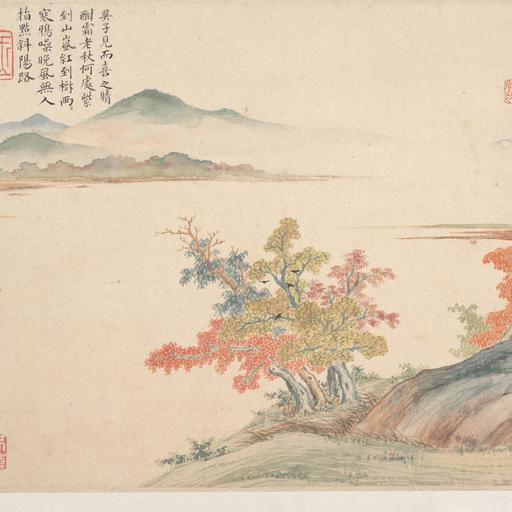 吳子見而善之晴
酣霜老秋何處紫
到山嵐紅到樹兩〻
寒鴉噪晚風無人
指點斜陽路